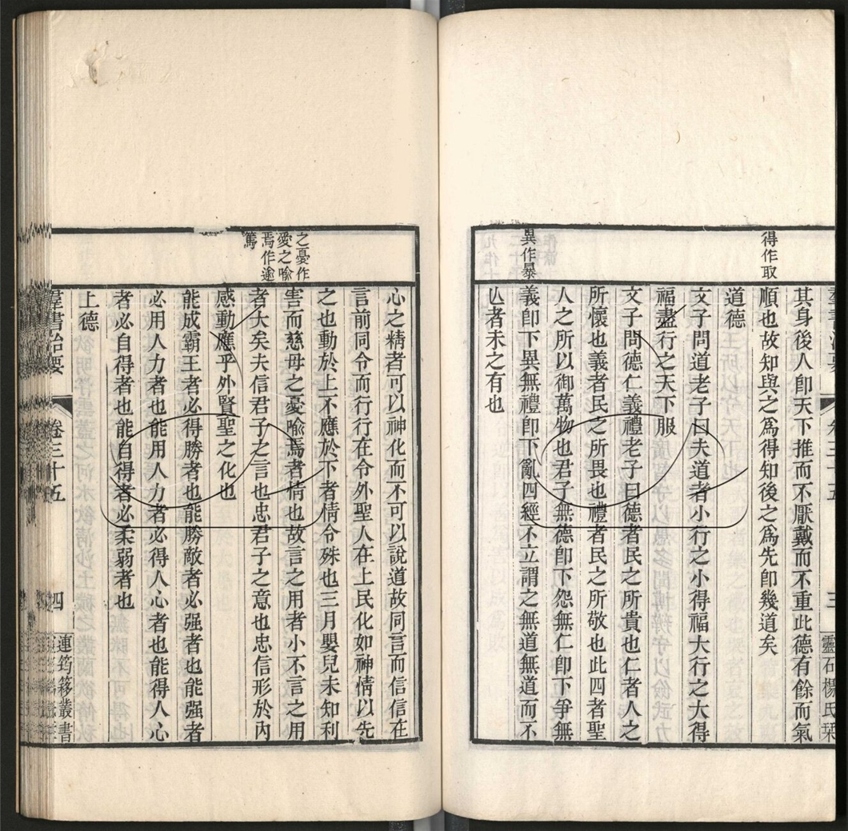 得作取
異作暴
其身後人卽天下推而不厭戴而不重此德有餘而氣
順也故知與之爲得知後之爲先卽幾道矣
道德
文子問道老子曰夫道者小行之小得福大行之大得
福盡行之天下服
文子問德仁義禮老子曰德者民之所貴也仁者人之
所懷也義者民之所畏也禮者民之所敬也此四者聖
人之所以御萬物也君子無德卽下怨無仁卽下爭無
義卽下異無禮卽下亂四經不立謂之無道無道而不
亾者未之有也
羣書治要
卷三十五
三
靈石楊氏栞
之憂作
愛之喻
焉作逾
篤
心之精者可以神化而不可以說道故同言而信信在
言前同令而行行在令外聖人在上民化如神情以先
之也動於上不應於下者情令殊也三月嬰兒未知利
害而慈母之憂喻焉者情也故言之用者小不言之用
者大矣夫信君子之言也忠君子之意也忠信形於內
感動應乎外賢聖之化也
能成霸王者必得勝者也能勝敵者必强者也能强者
必用人力者也能用人力者必得人心者也能得人心
者必自得者也能自得者必柔弱者也
上德
羣書治要
卷三十五
四
連筠簃叢書